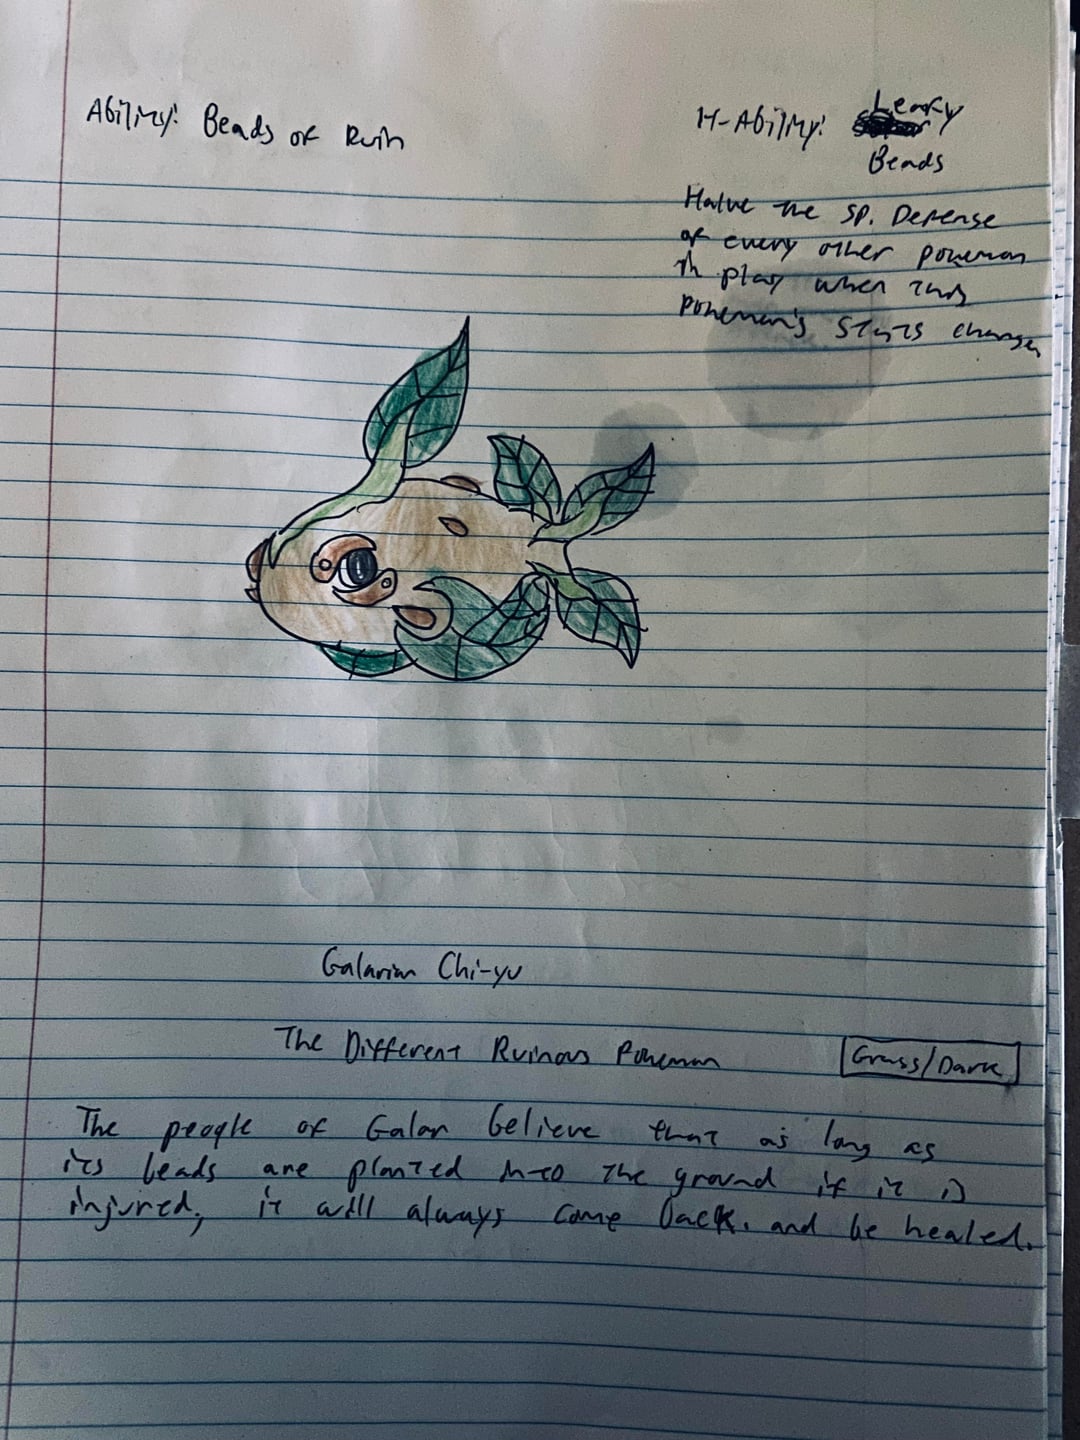 Ability: Beads of Ruin
H-Ability: Leafy
Beads
Halve the Sp. Defense
of every other pokemon
in play when this
pokemon's stats changes
Galarian Chi-yu
The Different Ruinous Pokemon
Grass/Dark
The people of Galar believe that as long as
its beads are planted into the ground if it is
injured, it will always come back. and be healed.